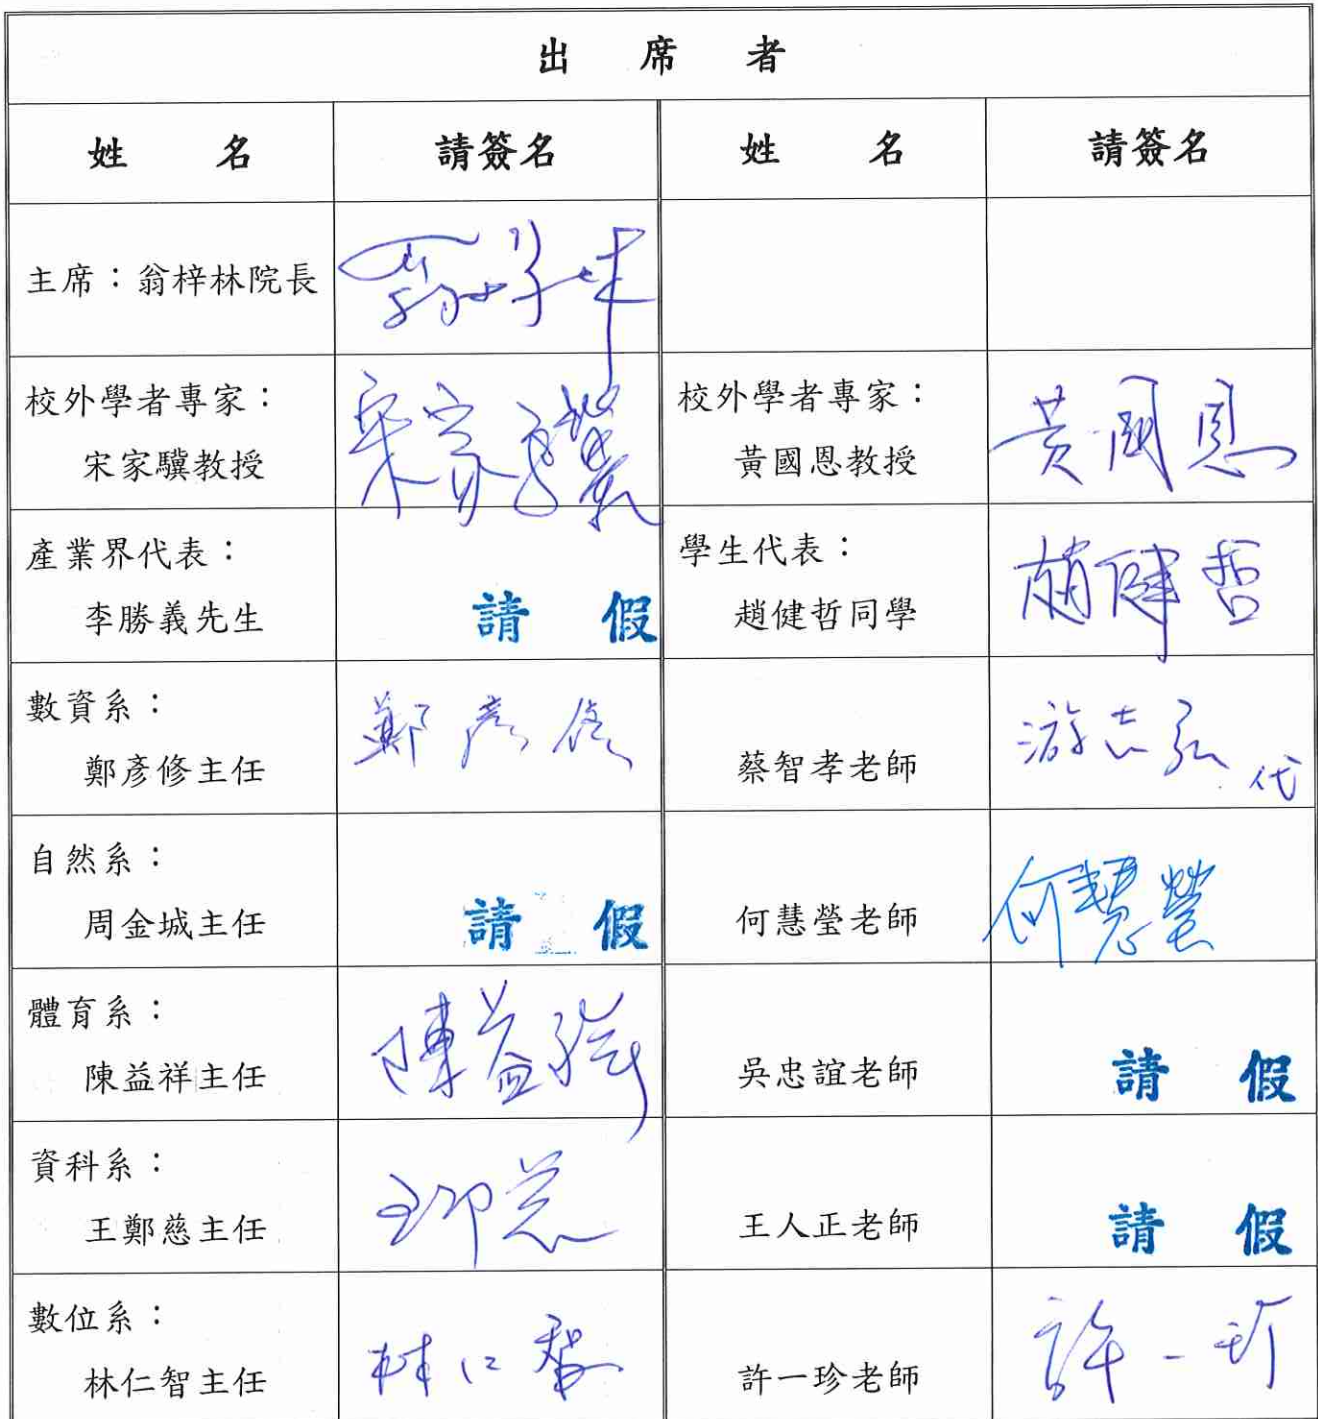 出 席 者
姓 名 請簽名 姓 名 請簽名
主席：翁梓林院長 翁梓林
校外學者專家：
宋家驥教授 宋家驥
校外學者專家：
黃國恩教授 黃國恩
產業界代表：
李勝義先生 請 假
學生代表：
趙健哲同學 趙健哲
數資系：
鄭彥修主任 鄭彥修
蔡智孝老師 游志弘 代
自然系：
周金城主任 請 假
何慧瑩老師 何慧瑩
體育系：
陳益祥主任 陳益祥
吳忠誼老師 請 假
資科系：
王鄭慈主任 王鄭慈
王人正老師 請 假
數位系：
林仁智主任 林仁智
許一珍老師 許一珍